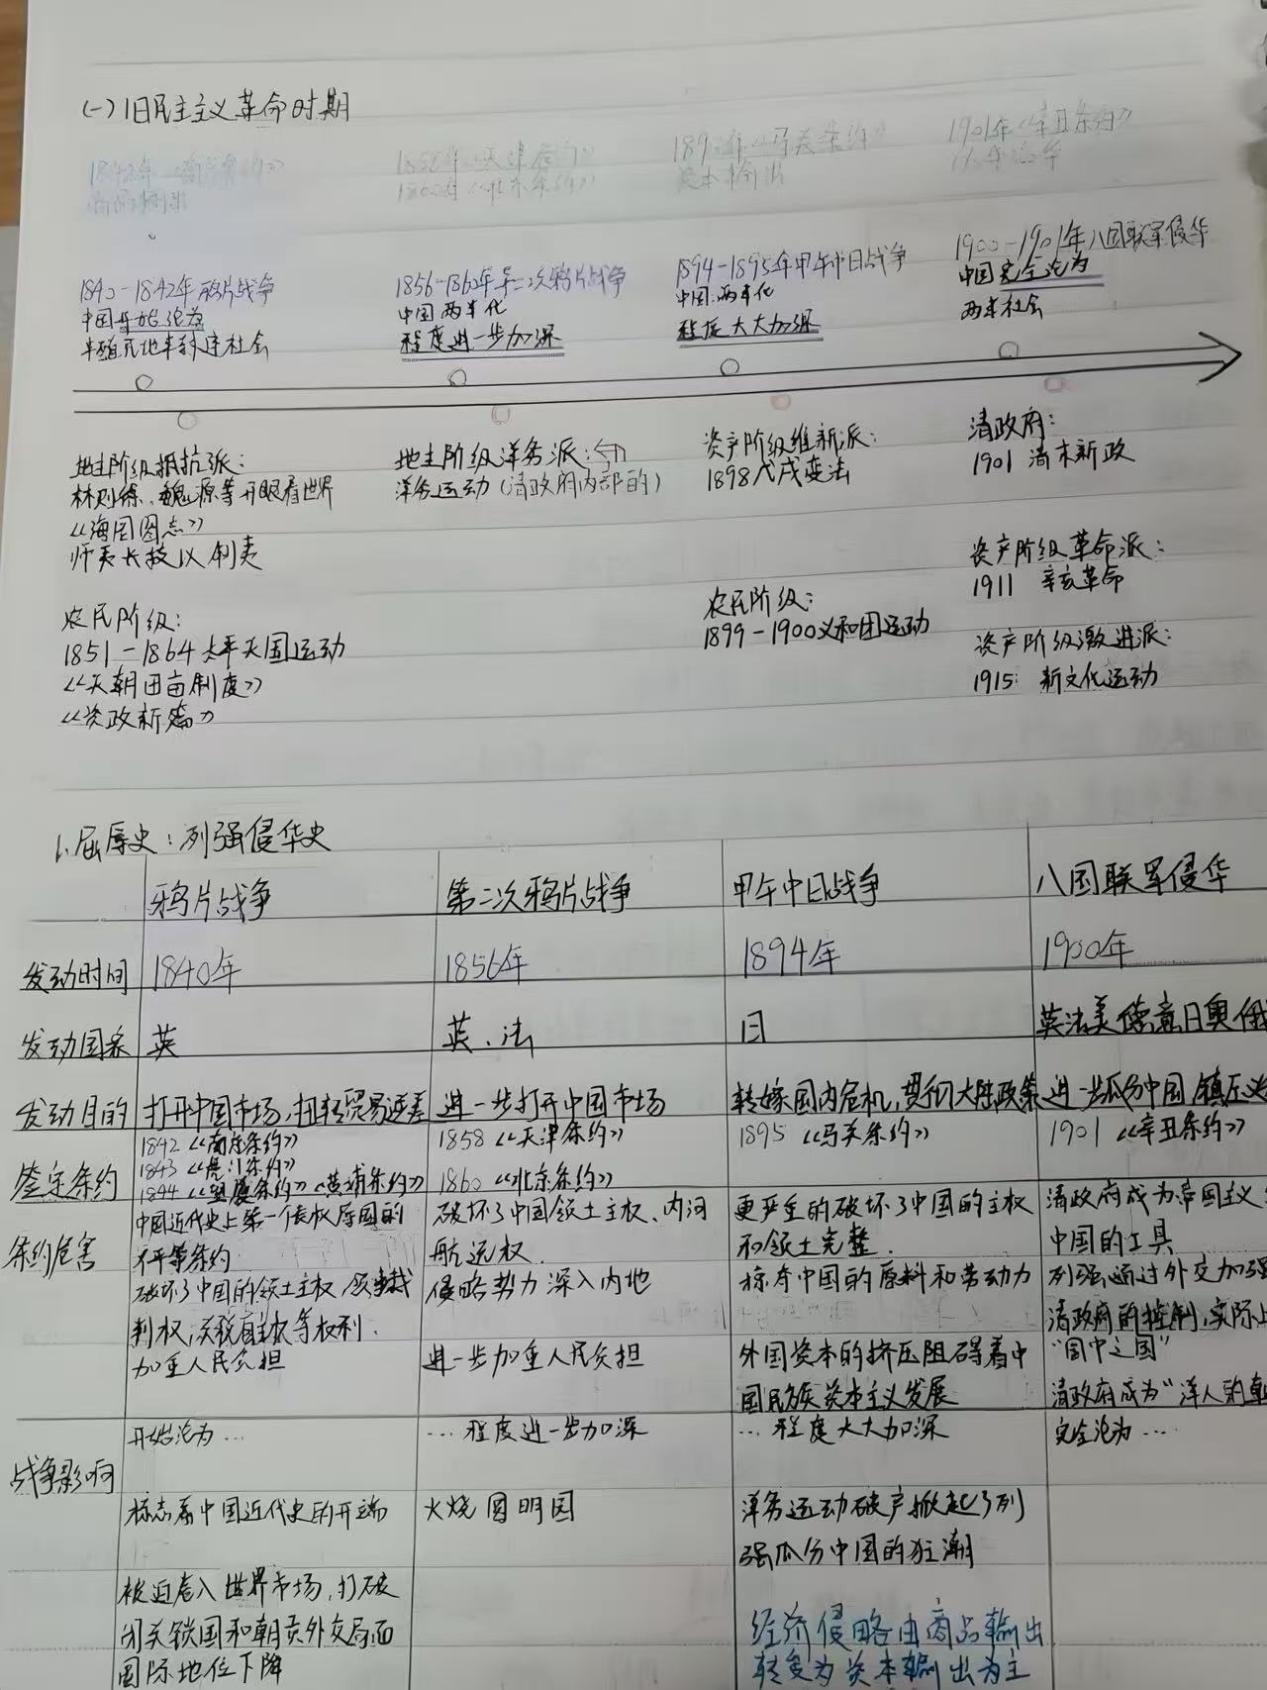 (一)旧民主主义革命时期
1842年《南京条约》
商品输出
1858年《天津条约》
1860年《北京条约》
1895年《马关条约》
资本输出
1901年《辛丑条约》
1840-1842年鸦片战争
中国开始沦为
半殖民地半封建社会
1856-1860年第二次鸦片战争
中国两半化
程度进一步加深
1894-1895年甲午中日战争
中国两半化
程度大大加深
1900-1901年八国联军侵华
中国完全沦为
两半社会
地主阶级抵抗派:
林则徐、魏源等开眼看世界
《海国图志》
师夷长技以制夷
农民阶级:
1851-1864太平天国运动
《天朝田亩制度》
《资政新篇》
地主阶级洋务派:
洋务运动(清政府内部的)
资产阶级维新派:
1898戊戌变法
农民阶级:
1899-1900义和团运动
清政府:
1901 清末新政
资产阶级革命派:
1911 辛亥革命
资产阶级激进派:
1915: 新文化运动
1.屈辱史:列强侵华史
鸦片战争 第二次鸦片战争 甲午中日战争 八国联军侵华
发动时间 1840年 1856年 1894年 1900年
发动国家 英 英、法 日 英法美德意日奥俄
发动目的 打开中国市场,扭转贸易逆差 进一步打开中国市场 转嫁国内危机,贯彻大陆政策 进一步瓜分中国 镇压义
签定条约
1842《南京条约》
1843《虎门条约》
1844《望厦条约》《黄埔条约》
1858《天津条约》
1860《北京条约》
1895《马关条约》
1901《辛丑条约》
条约危害
中国近代史上第一个丧权辱国的
不平等条约
破坏了中国的领土主权、领事裁
判权,关税自主权等权利.
加重人民负担
破坏了中国领土主权、内河
航运权.
侵略势力深入内地
进一步加重人民负担
更严重的破坏了中国的主权
和领土完整.
掠夺中国的原料和劳动力
外国资本的挤压阻碍着中
国民族资本主义发展
清政府成为帝国主义
中国的工具
列强通过外交加强
清政府的控制,实际上
“国中之国”
清政府成为“洋人的朝
战争影响
开始沦为…
标志着中国近代史的开端
被迫卷入世界市场,打破
闭关锁国和朝贡外交局面
国际地位下降
…程度进一步加深
火烧圆明园
…程度大大加深
洋务运动破产掀起了列
强瓜分中国的狂潮
经济侵略由商品输出
转变为资本输出为主
完全沦为…